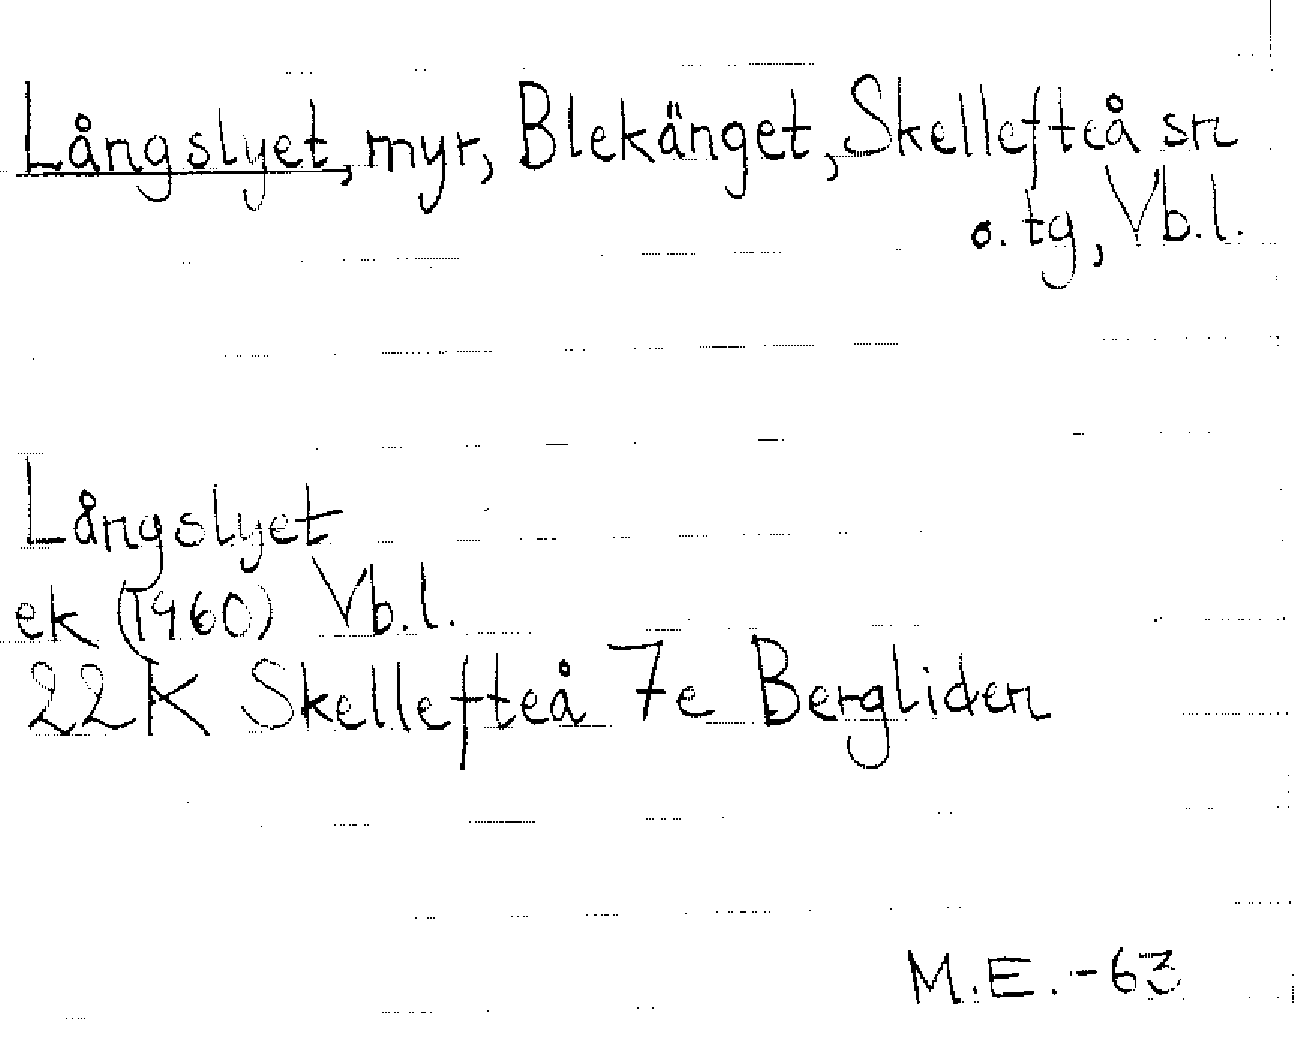 Långslyet, myr, Blekänget, Skellefteå sn
o. tg, Vb.l.
Långslyet
ek (1960) Vb.l.
22K Skellefteå 7e Bergliden
M.E.-63